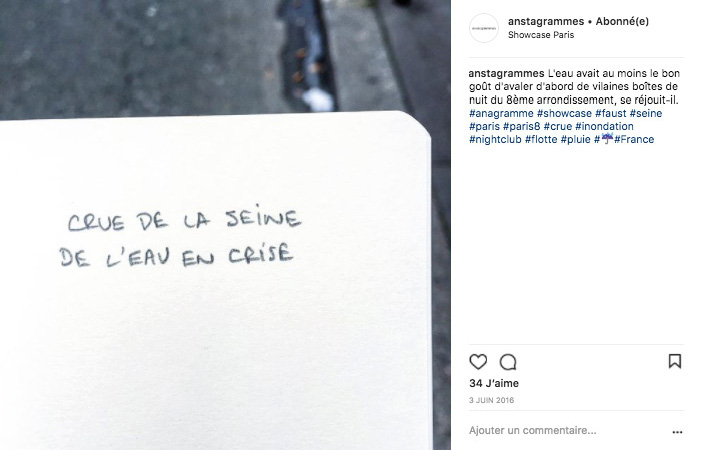 anstagrammes • Abonné(e)
Showcase Paris
anstagrammes L'eau avait au moins le bon
goût d'avaler d'abord de vilaines boîtes de
nuit du 8ème arrondissement, se réjouit-il.
#anagramme #showcase #faust #seine
#paris #paris8 #crue #inondation
#nightclub #flotte #pluie #☔#France
CRUE DE LA SEINE
DE L'EAU EN CRISE
34 J'aime
3 JUIN 2016
Ajouter un commentaire...